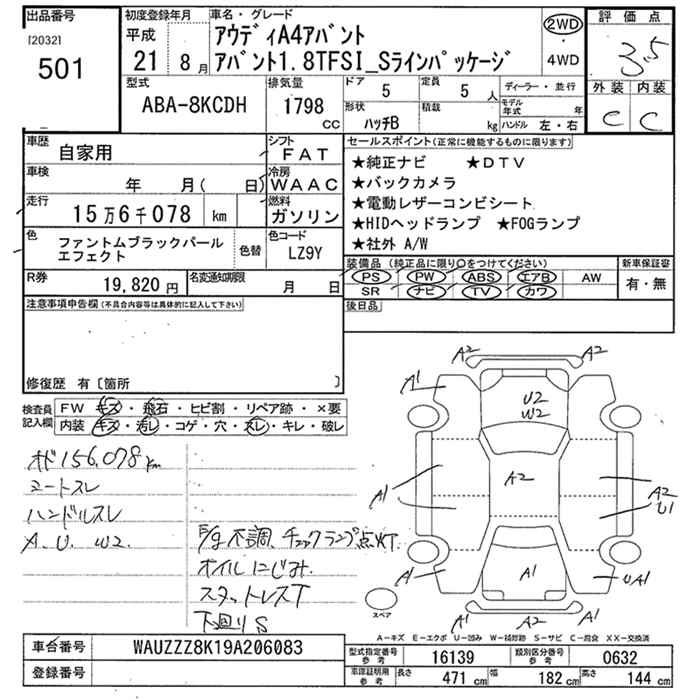 出品番号
[2032]
501
初度登録年月
平成
21 8月
車名・グレード
アウディA4アバント
アバント1.8TFSI_Sラインパッケージ
2WD
・
4WD
評価点
3.5
外装 内装
C C
型式
ABA-8KCDH
排気量
1798
CC
ドア
5
定員
5 人
形状
ハッチB
積載
kg
ディーラー・並行
モデル年式 年
ハンドル 左・右
車歴
自家用
シフト
FAT
車検
年 月( 日)
冷房
WAAC
走行
15万6千078 km
燃料
ガソリン
色
ファントムブラックパール
エフェクト
色替
色コード
LZ9Y
R券
19,820円
名変通知期限
月 日
セールスポイント(正常に機能するものに限ります)
★純正ナビ ★DTV
★バックカメラ
★電動レザーコンビシート
★HIDヘッドランプ ★FOGランプ
★社外 A/W
装備品(純正品に限り○をつけてください)
PS PW ABS エアB AW
SR ナビ TV カワ
新車保証書
有・無
後日品
注意事項申告欄(不具合内容等は具体的に記入して下さい)
修復歴 有〔箇所 〕
検査員
記入欄
FW キズ・飛石・ヒビ割・リペア跡・×要
内装 キズ・汚レ・コゲ・穴・スレ・キレ・破レ
メーター156,078km
シートスレ
ハンドルスレ
A.U.W2
E/g不調、チェックランプ点灯
オイルにじみ
スタットレスT
下廻りS
A2 A2
A1
U2
W2
A2
A1
A2
U1
A1
A1
UA1
A1 A2 A1
スペア
A-キズ E-エクボ U-凹み W-補修跡 S-サビ C-腐食 XX-交換済
車台番号
WAUZZZ8K19A206083
登録番号
型式指定番号
参考
16139
類別区分番号
参考
0632
車庫証明用
参考
長さ 471 cm 幅 182 cm 高さ 144 cm